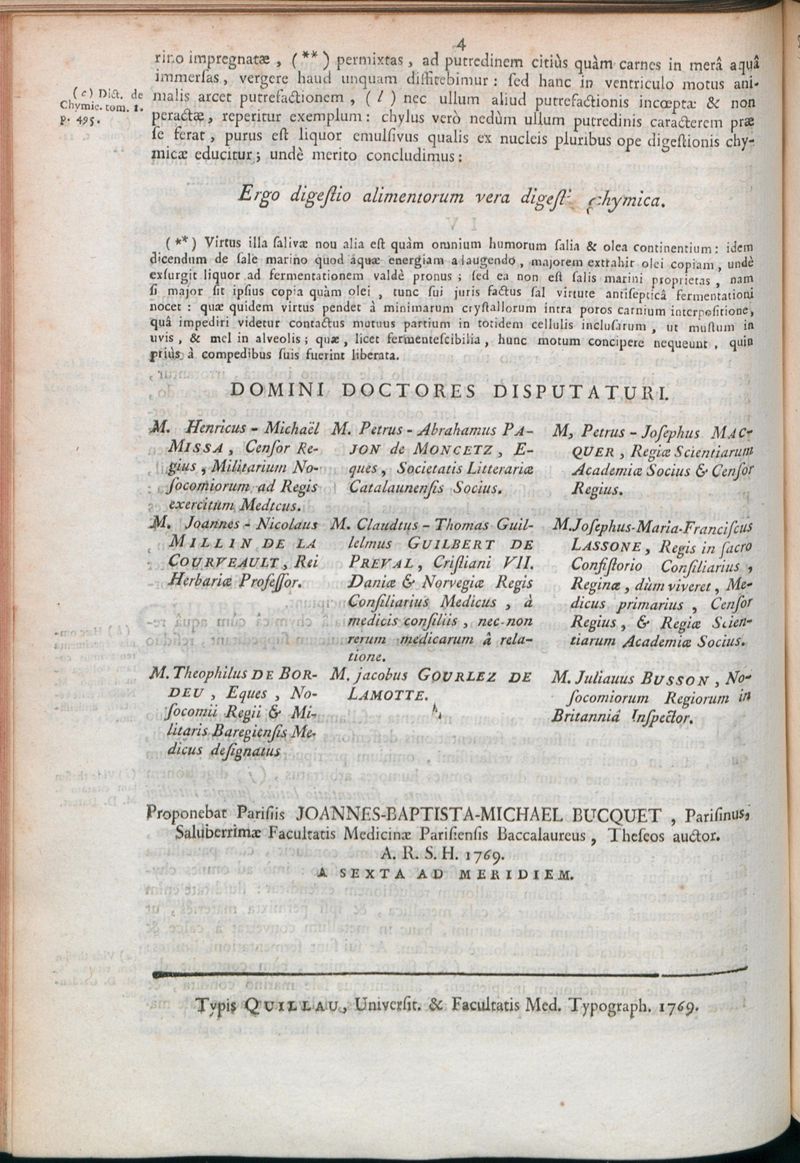 4
rino impregnatæ , (**) permixtas , ad putredinem citiùs quàm carnes in merâ aquâ
immerſas, vergere haud unquam diffitebimur : ſed hanc in ventriculo motus ani-
malis arcet putrefactionem , ( l ) nec ullum aliud putrefactionis incœptæ & non
peractæ, reperitur exemplum : chylus verò nedùm ullum putredinis caracterem præ
ſe ferat, purus eſt liquor emulſivus qualis ex nucleis pluribus ope digeſtionis chy-
micæ educitur; undè merito concludimus :
( c ) Dict. de
Chymie. tom. 1.
p. 495.
Ergo digeſtio alimentorum vera digeſt chymica.
(**) Virtus illa ſalivæ nou alia eſt quàm omnium humorum ſalia & olea continentium : idem
dicendum de ſale marino quod aquæ energiam adaugendo , majorem extrahit olei copiam, undè
exſurgit liquor ad fermentationem valdè pronus ; ſed ea non eſt ſalis marini proprietas , nam
ſi major ſit ipſius copia quàm olei , tunc ſui juris factus ſal virtute antiſepticâ fermentationi
nocet : quæ quidem virtus pendet à minimarum cryſtallorum intra poros carnium interpoſitione,
quâ impediri videtur contactus mutuus partium in totidem cellulis incluſarum , ut muſtum in
uvis , & mel in alveolis ; quæ , licet fermenteſcibilia , hunc motum concipere nequeunt , quin
priùs à compedibus ſuis fuerint liberata.
DOMINI DOCTORES DISPUTATURI.
M. Henricus - Michaël
MISSA , Cenſor Re-
gius , Militarium No-
ſocomiorum ad Regis
exercitum Medicus.
M. Petrus - Abrahamus PA-
JON de MONCETZ , E-
ques , Societatis Litterariæ
Catalaunenſis Socius.
M, Petrus - Joſephus MAC-
QUER , Regiæ Scientiarum
Academiæ Socius & Cenſor
Regius.
M. Joannes - Nicolaus
MILLIN DE LA
COURVEAULT , Rei
Herbariæ Profeſſor.
M. Claudius - Thomas Guil-
lelmus GUILBERT DE
PREVAL , Criſtiani VII.
Daniæ & Norvegiæ Regis
Conſiliarius Medicus , à
medicis conſiliis , nec-non
rerum medicarum à rela-
tione.
M. Joſephus-Maria-Franciſcus
LASSONE , Regis in ſacro
Conſiſtorio Conſiliarius ,
Reginæ , dùm viveret , Me-
dicus primarius , Cenſor
Regius , & Regiæ Scien-
tiarum Academiæ Socius.
M. Theophilus DE BOR-
DEU , Eques , No-
ſocomii Regii & Mi-
litaris Baregienſis Me-
dicus deſignatus
M. jacobus GOURLEZ DE
LAMOTTE.
M. Juliauus BUSSON , No-
ſocomiorum Regiorum in
Britanniâ Inſpector.
Proponebat Pariſiis JOANNES-BAPTISTA-MICHAEL BUCQUET , Pariſinus,
Saluberrimæ Facultatis Medicinæ Pariſienſis Baccalaureus , Theſeos auctor.
A. R. S. H. 1769.
A SEXTA AD MERIDIEM.
Typis QUILLAU, Univerſit. & Facultatis Med. Typograph. 1769.